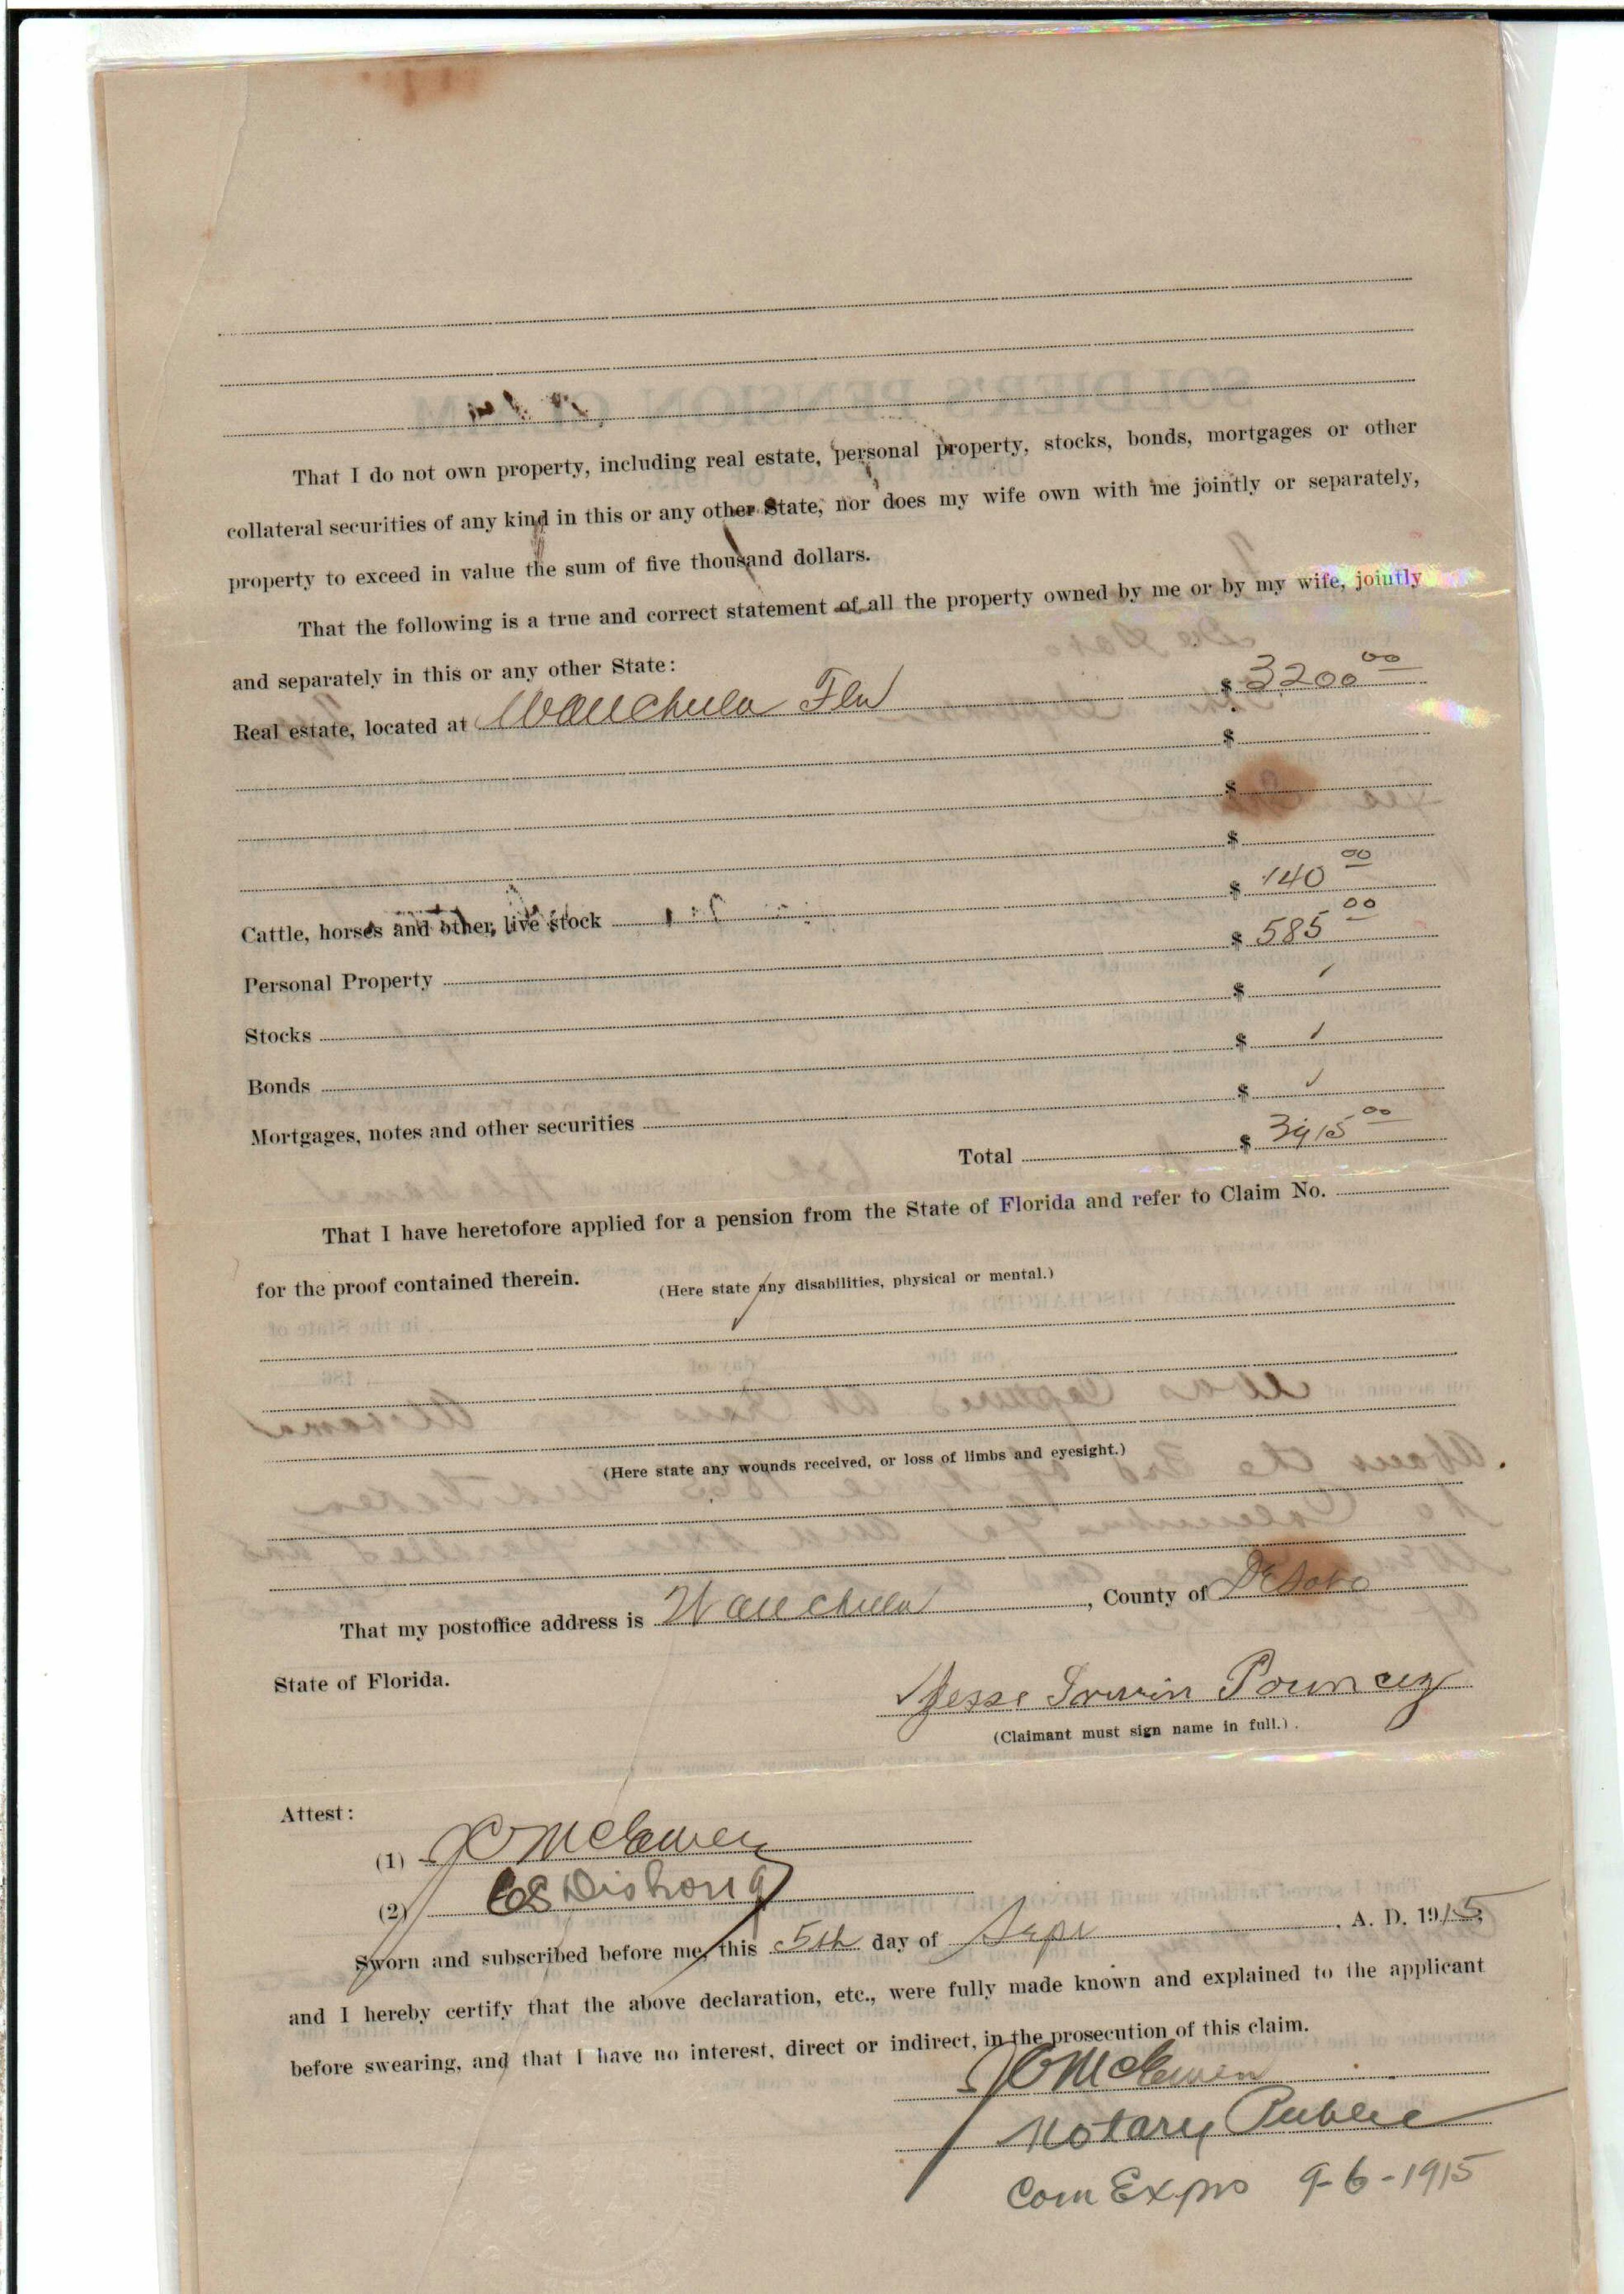 That I do not own property, including real estate, personal property, stocks, bonds, mortgages or other
collateral securities of any kind in this or any other State, nor does my wife own with me jointly or separately,
property to exceed in value the sum of five thousand dollars.
That the following is a true and correct statement of all the property owned by me or by my wife, jointly
and separately in this or any other State:
Real estate, located at Wauchula Fla $ 3200 00
$
$
$
Cattle, horses and other live stock $ 140 00
Personal Property $ 585 00
Stocks $
Bonds $
Mortgages, notes and other securities $
Total $ 3915 00
That I have heretofore applied for a pension from the State of Florida and refer to Claim No.
for the proof contained therein.
(Here state any disabilities, physical or mental.)
(Here state any wounds received, or loss of limbs and eyesight.)
That my postoffice address is Wauchula, County of DeSoto
State of Florida.
Jesse Irwin Pouncey
(Claimant must sign name in full.)
Attest:
(1) McEwen
(2) Dishong
Sworn and subscribed before me, this 5th day of Sept, A. D. 1915,
and I hereby certify that the above declaration, etc., were fully made known and explained to the applicant
before swearing, and that I have no interest, direct or indirect, in the prosecution of this claim.
McEwen
Notary Public
Com Exprs 9-6-1915